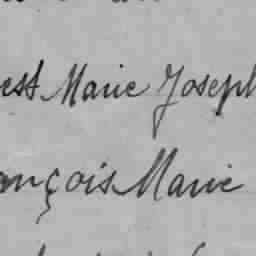 est Marie Joseph
ançois Marie